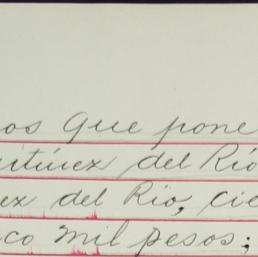 os que pone
rtínez del Río
ez del Río, cie
co mil pesos;